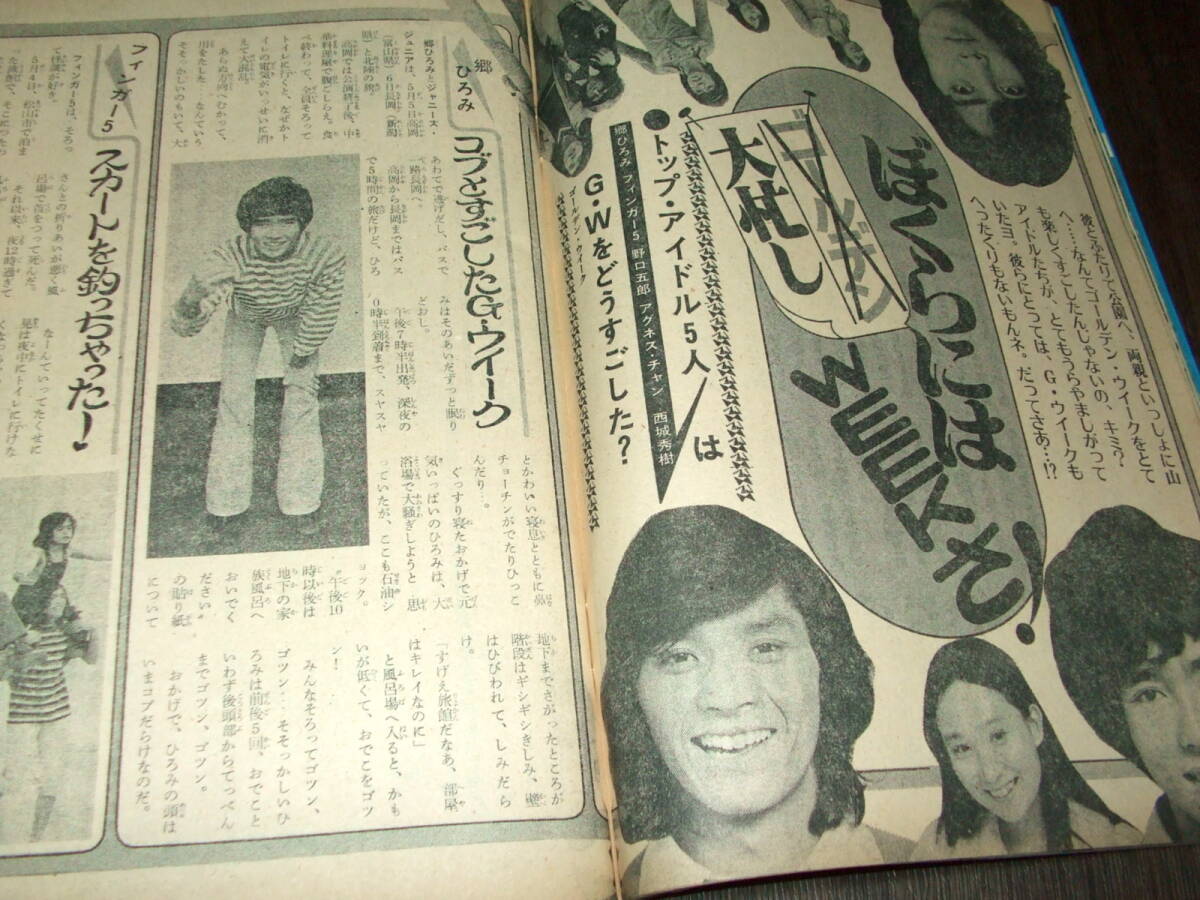 彼とふたりで公園へ、両親といっしょに山
へ……なんてゴールデン・ウイークをとて
も楽しくすごしたんじゃないの、キミ?
アイドルたちが、とてもうらやましがって
いたヨ。彼らにとっては、G・ウイークも
へったくりもないもんネ。だってさあ…!?
ぼくらには
ゴールデン
大忙し
WEEKさ!
●トップ・アイドル5人は
郷ひろみ フィンガー5 野口五郎 アグネス・チャン 西城秀樹
G・Wをどうすごした?
ゴールデン・ウィーク
郷ひろみ
コブとすごしたG・ウイーク
郷ひろみとジャニーズ・
ジュニアは、5月5日高岡
(富山県)6日長岡(新潟
県)と北陸の旅。
高岡では公演終了後、中
華料理屋で腹ごしらえ。食
べ終わって、全員そろって
トイレに行くと、なぜかト
イレの電気がいっせいに消
えて大混乱。
あらぬ方向へむかって、
川をたした……なんていう
そそっかしいのもいて、大
あわてで逃げだし、バスで
一路長岡へ。
高岡から長岡まではバス
で5時間の旅だけど、ひろ
みはそのあいだずっと眠り
どおし。
午後7時半出発、深夜の
0時半到着まで、スヤスヤ
とかわいい寝息とともに鼻
チョーチンがでたりひっこ
んだり…。
ぐっすり寝たおかげで元
気いっぱいのひろみは、大
浴場で大騒ぎしようと思
っていたが、ここも石油シ
ョック。
〝午後10
時以後は
地下の家
族風呂へ
おいでく
ださい〟
の貼り紙
について
地下までさがったところが
階段はギシギシきしみ、壁
はひびわれて、しみだら
け。
「すげえ旅館だなあ、部屋
はキレイなのに」
と風呂場へ入ると、かも
いが低くて、おでこをゴツ
ン!
みんなそろってゴツン、
ゴツン…そそっかしいひ
ろみは前後5回、おでこと
いわず後頭部からてっぺん
までゴツン、ゴツン。
おかげで、ひろみの頭は
いまコブだらけなのだ。
フィンガー5
スカートを釣っちゃった!
フィンガー5は、そろっ
て怪談が好き。
5月4日、松山市で泊ま
さんとの折りあいが悪く風
呂場で首をつって死んだ。
それ以来、夜12時過ぎて
なーんていってたくせに
晃は夜中にトイレに行けな